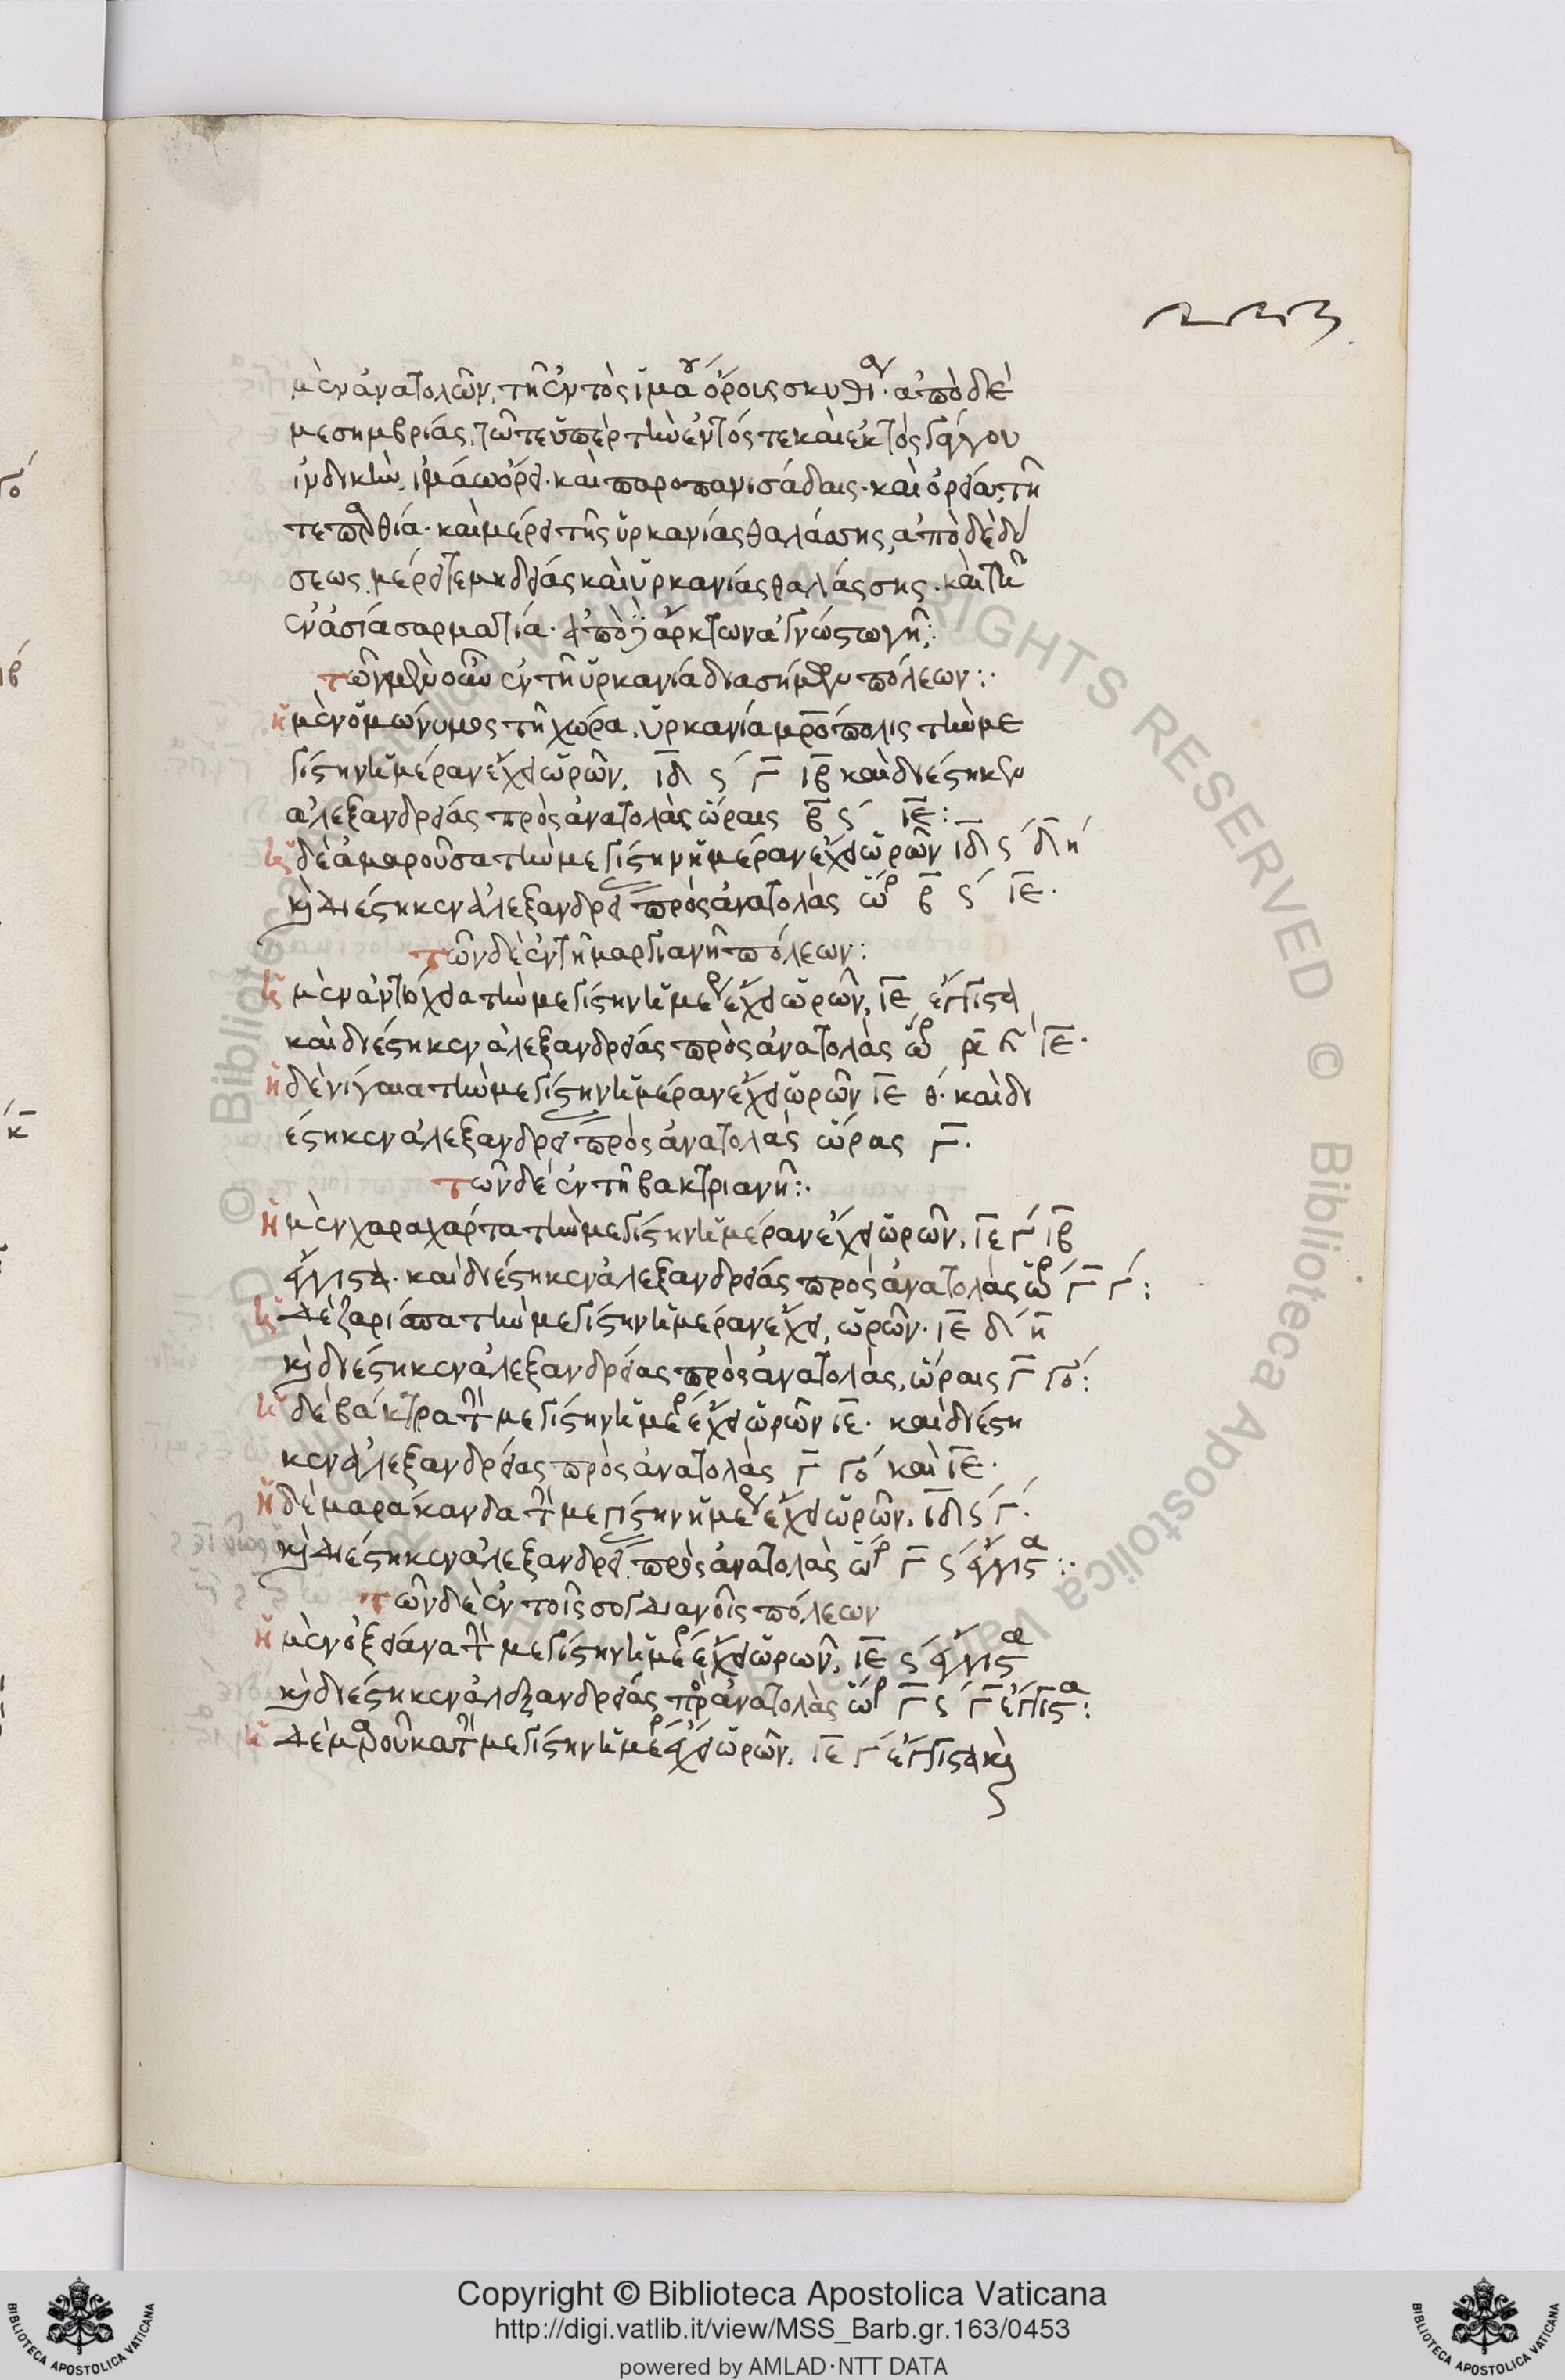 μὲν ἀνατολῶν, τῆ ἐντὸς ἰμάου ὄροις σκυθίαν· ἀπὸ δὲ
μεσημβρίας, τῶ τε ὑπὲρ τὴν ἐντός τε καὶ ἐκτὸς γάγγου
ἰνδικὴν, ἰμάω ὄρει· καὶ παροπανισάδαις· καὶ ἀρεία, τῆ
τε παρθία· καὶ μέρει τῆς ὑρκανίας θαλάσσης, ἀπὸ δὲ δύ
σεως μέρει τε μηδείας καὶ ὑρκανίας θαλάσσης· καὶ τῆ
ἐν ἀσία σαρματία· ἀπὸ δὲ ἄρκτων ἀγνώστω γῆ:
τῶν μὲν οὖν ἐν τῆ ὑρκανία διασήμων πόλεων:·
ἡ μὲν ὁμώνυμος τῆ χώρα, ὑρκανία μρόπολις τὴν με
γίστην ἡμέραν ἔχει ὡρῶν, ιδ ς γ ιβ καὶ διέστηκεν
ἀλεξανδρείας πρὸς ἀνατολὰς ὥραις β ς ιε:
ἡ δὲ ἀμαροῦσα τὴν μεγίστην ἡμέραν ἔχει ὡρῶν ιδ ς δ η
κὶ διέστηκεν ἀλεξανδρείας πρὸς ἀνατολὰς ὥρ β ς ιε·
τῶν δὲ ἐν τῆ μαργιανῆ πόλεων:
ἡ μὲν ἀντιόχεια τὴν μεγίστην ἡμέρ ἔχει ὡρῶν, ιε ἔγγιστα
καὶ διέστηκεν ἀλεξανδρείας πρὸς ἀνατολὰς ὥρ ιε·
ἡ δὲ νίγαια τὴν μεγίστην ἡμέραν ἔχει ὡρῶν ιε θ· καὶ δι
έστηκεν ἀλεξανδρείας πρὸς ἀνατολὰς ὥρας γ·
τῶν δὲ ἐν τῆ βακτριανῆ:·
ἡ μὲν χαραχάρτα τὴν μεγίστην ἡμέραν ἔχει ὡρῶν, ιε γ ιβ
ἔγγιστα· καὶ διέστηκεν ἀλεξανδρείας πρὸς ἀνατολὰς ὥρ γ γ:
ἡ δὲ ζαρίσπα τὴν μεγίστην ἡμέραν ἔχει, ὡρῶν· ιε δ η
κὶ διέστηκεν ἀλεξανδρείας πρὸς ἀνατολὰς, ὥραις γ γο:
ἡ δὲ βάκτρα τὴν μεγίστην ἡμέρ ἔχει ὡρῶν ιε· καὶ διέστη
κεν ἀλεξανδρείας πρὸς ἀνατολὰς γ γο καὶ ιε·
ἡ δὲ μαράκανδα τὴν μεγίστην ἡμέρ ἔχει ὡρῶν, ιδ ς γ·
κὶ διέστηκεν ἀλεξανδρείας πρὸς ἀνατολὰς ὥρ γ ς ἔγγιστα:·
τῶν δὲ ἐν τοῖς σογδιανοῖς πόλεων
ἡ μὲν ὀξείανα τὴν μεγίστην ἡμέρ ἔχει ὡρῶν, ιε ς ἔγγιστα
κὶ διέστηκεν ἀλεξανδρείας πρὸς ἀνατολὰς ὥρ γ ς γ ἔγγιστα:
ἡ δὲ μαροῦκα τὴν μεγίστην ἡμέρ ἔχει ὡρῶν, ιε γ ἔγγιστα κὶ
Copyright © Biblioteca Apostolica Vaticana
http://digi.vatlib.it/view/MSS_Barb.gr.163/0453
powered by AMLAD·NTT DATA